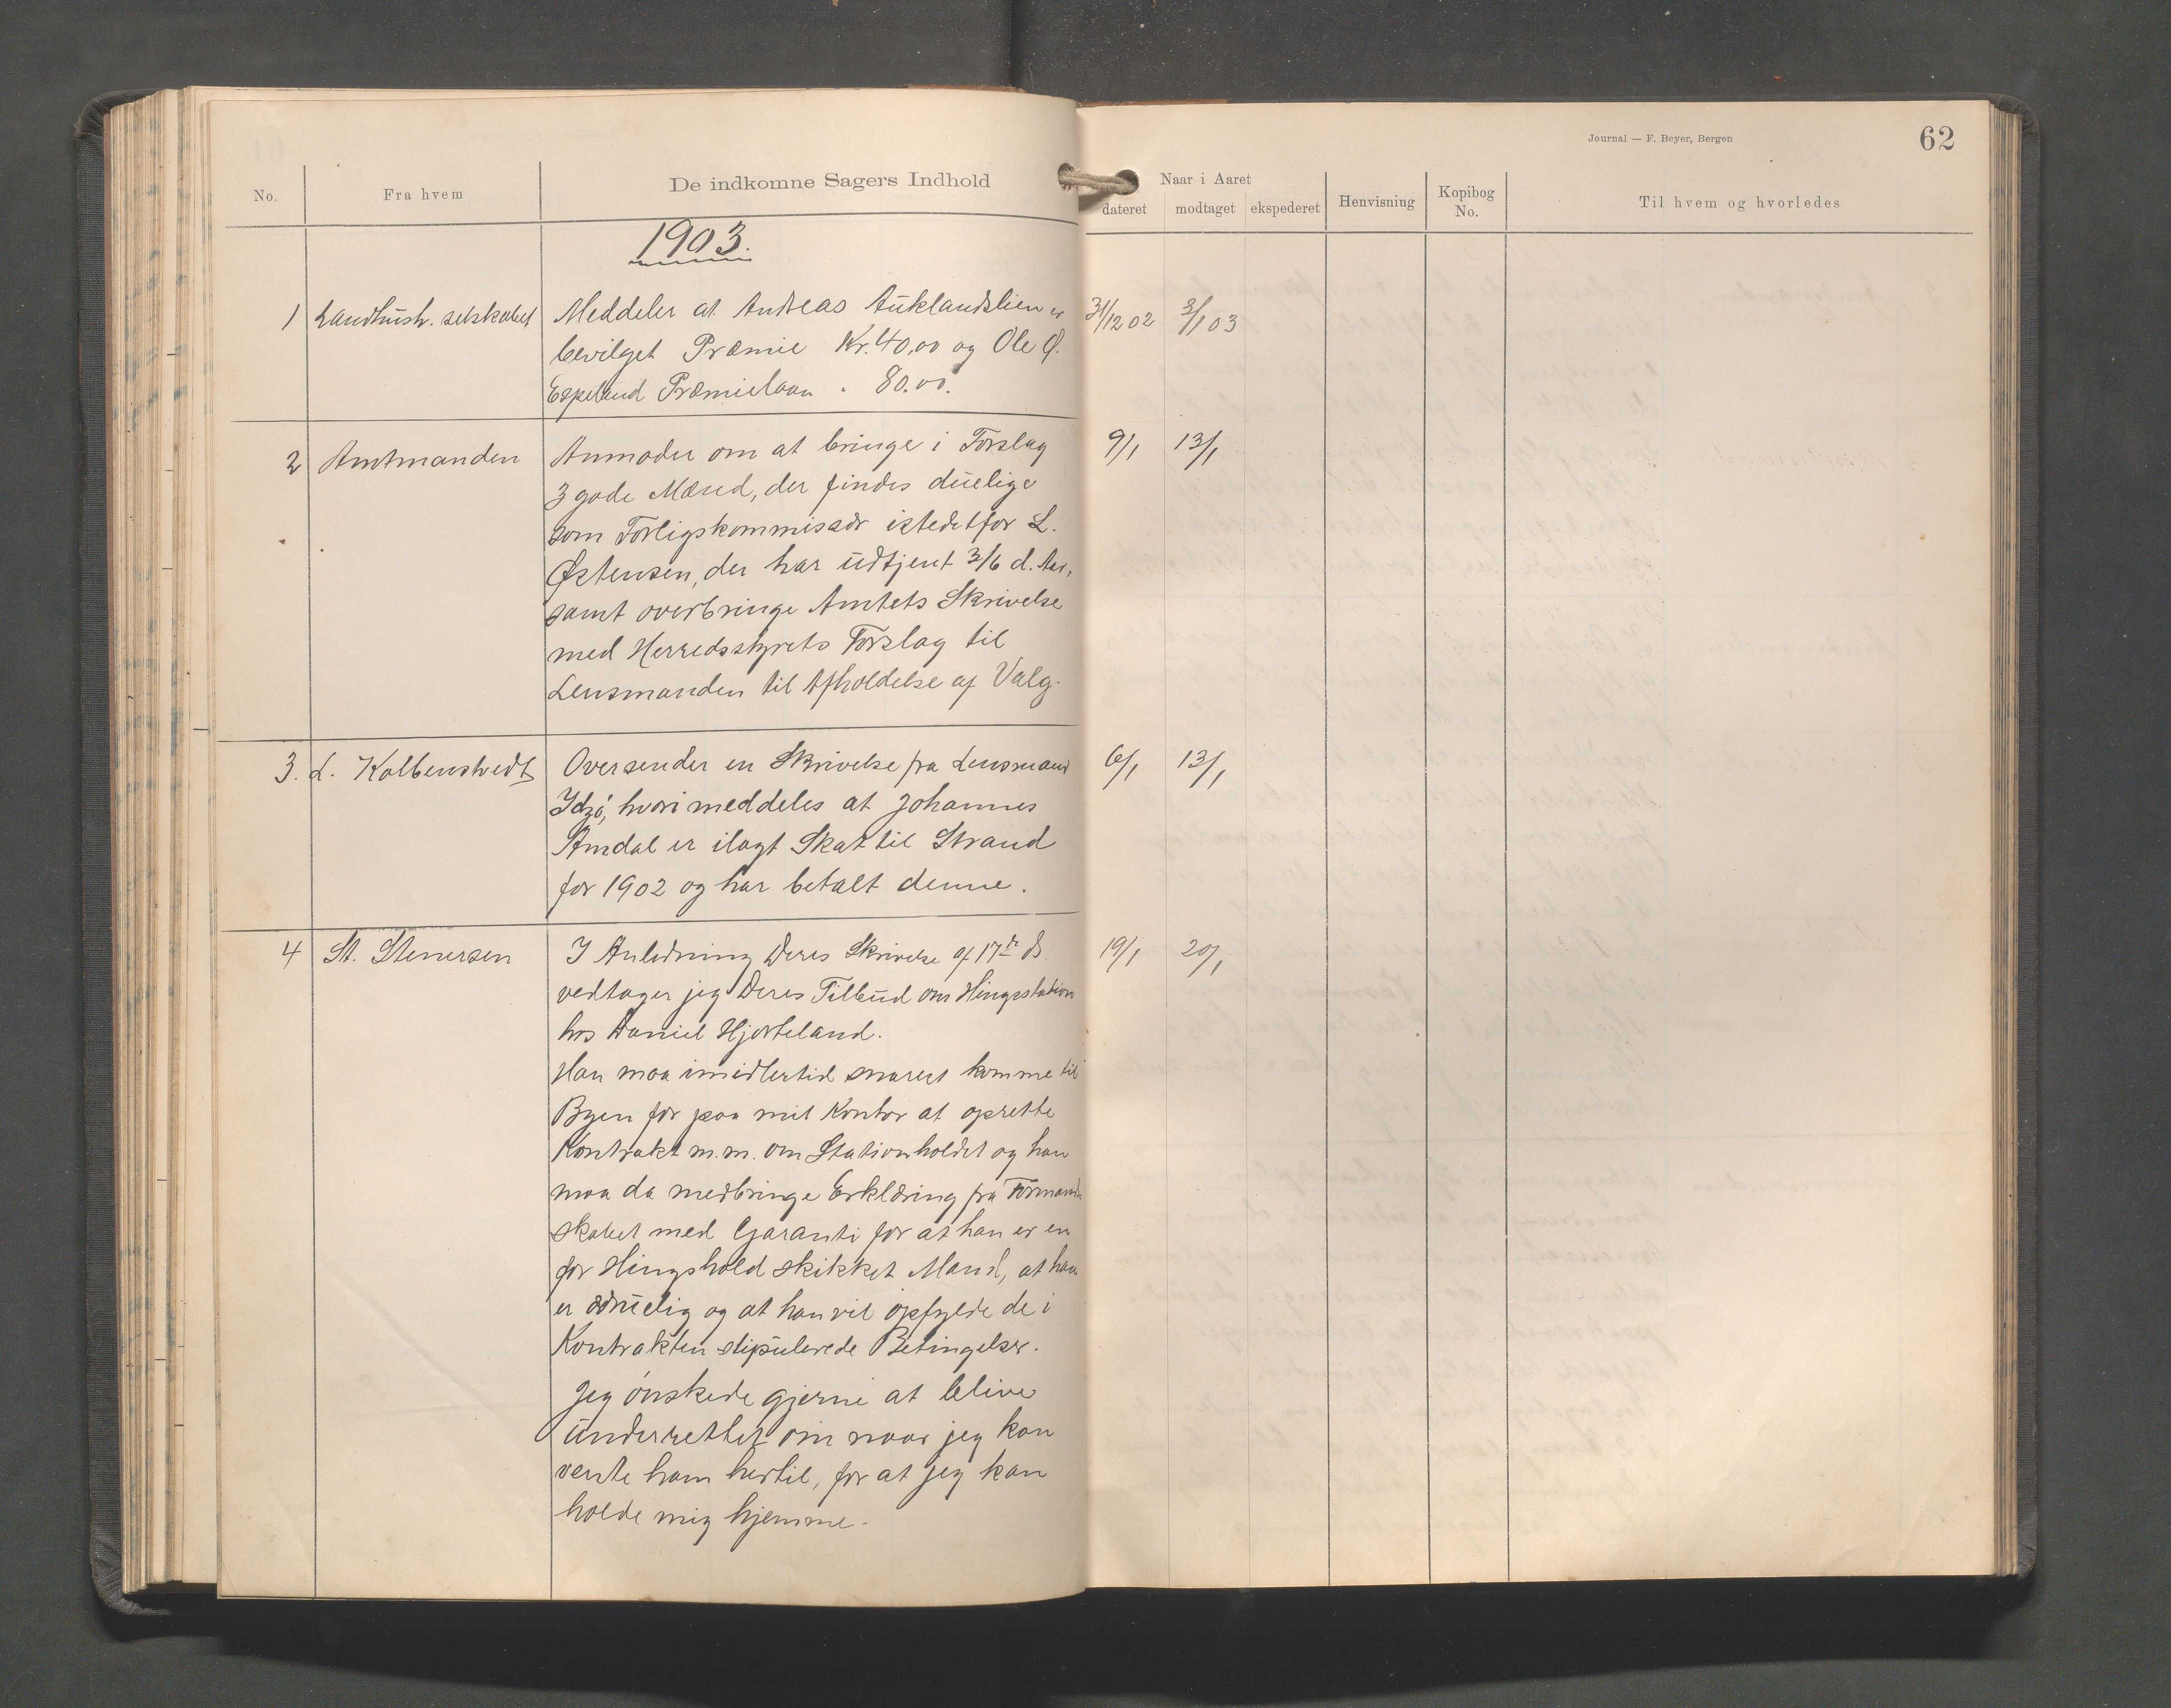 Journal — F. Beyer, Bergen
62
No.
Fra hvem
De indkomne Sagers Indhold
Naar i Aaret
dateret
modtaget
ekspederet
Henvisning
Kopibog No.
Til hvem og hvorledes
1903.
1 Landhush. selskabet Meddeler at Andreas Auklandslien er 31/12 02 3/1 03
bevilget Præmie Kr. 40,00 og Ole Ø.
Espeland Præmielaan " 80.00.
2 Amtmanden Anmoder om at bringe i Forslag 9/1 13/1
3 gode Mænd, der findes duelige
som Forligskommissær istedetfor L.
Østensen, der har udtjent 3/6 d. Aar,
samt overbringe Amtets Skrivelse
med Herredsstyrets Forslag til
Lensmanden til Afholdelse af Valg.
3. L. Kolbenstvedt Oversender en Skrivelse fra Lensmand 6/1 13/1
Idsö, hvori meddeles at Johannes
Amdal er ilagt Skat til Strand
for 1902 og har betalt denne.
4 St. Stenersen I Anledning Deres Skrivelse af 17de ds. 19/1 20/1
vedtager jeg Deres Tilbud om Hingstation
hos Daniel Hjorteland.
Han maa imidlertid snarest komme til
Byen for paa mit Kontor at oprette
Kontrakt m.m. om Stationholdet og han
maa da medbringe Erklæring fra Formand-
skabet med Garanti for at han er en
for Hingshold skikket Mand, at han
er ædruelig og at han vil opfylde de i
Kontrakten stipulerede Betingelser.
Jeg ønskede gjerne at blive
underrettet om naar jeg kan
vente ham hertil, for at jeg kan
holde mig hjemme.